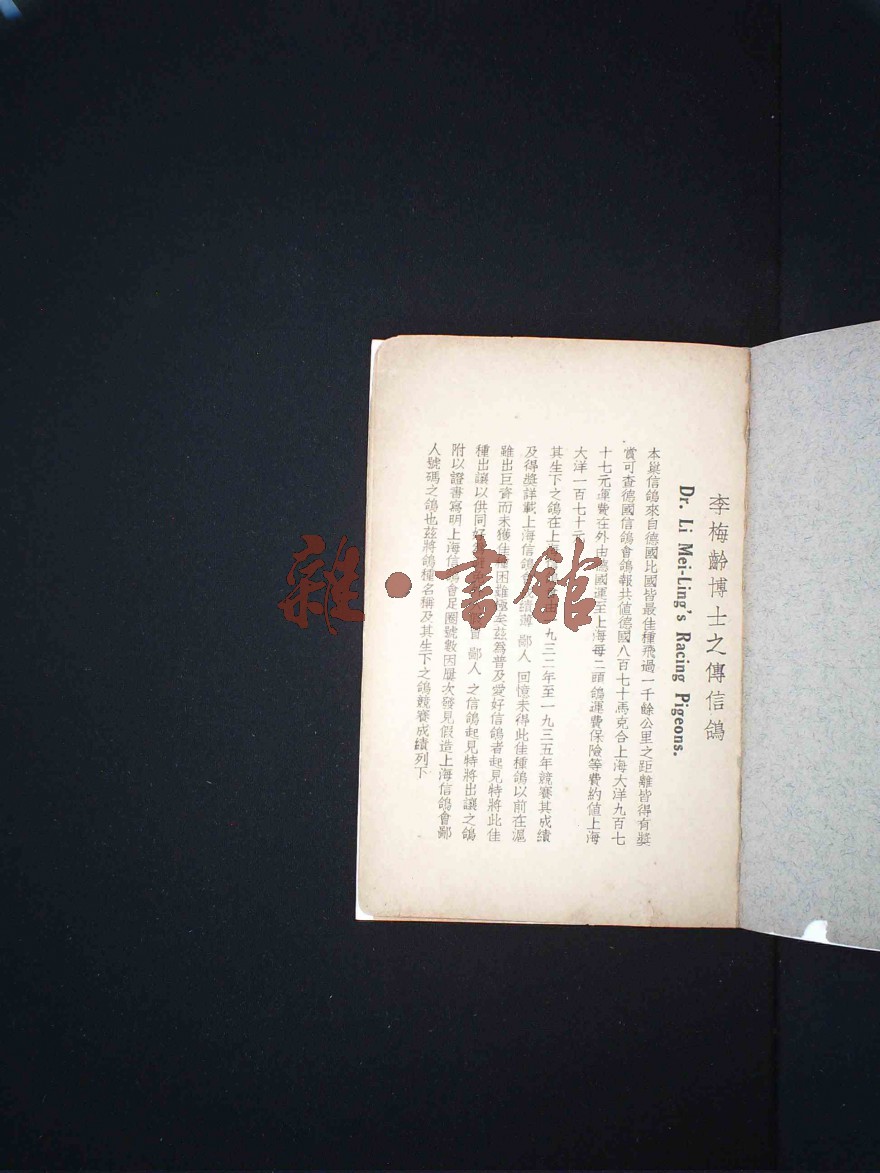 李梅齡博士之傳信鴿
Dr. Li Mei-Ling's Racing Pigeons.
本巢信鴿來自德國比國皆最佳種飛過一千餘公里之距離皆得有獎
賞可查德國信鴿會鴿報共值德國八百七十馬克合上海大洋九百七
十七元運費在外由德國運至上海每二頭鴿運費保險等費約值上海
大洋一百七十元
其生下之鴿在上 九三二年至一九三五年競賽其成績
及得獎詳載上海信鴿會 績薄 鄙人 回憶未得此佳種鴿以前在滬
雖出巨資而未獲佳種困難極矣茲為普及愛好信鴿者起見特將此佳
種出讓以供同好 鄙人 之信鴿起見特將出讓之鴿
附以證書寫明上海信鴿會足圈號數因屢次發見假造上海信鴿會鄙
人號碼之鴿也茲將鴿種名稱及其生下之鴿競賽成績列下
雜·書館